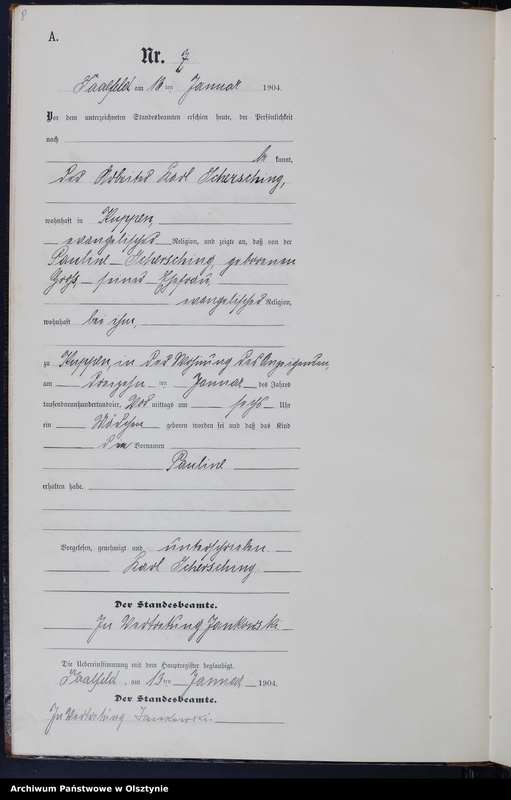 8
A.
Nr. 7
Saalfeld am 13 ten Januar 1904.
Vor dem unterzeichneten Standesbeamten erschien heute, der Persönlichkeit
nach
be kannt,
der Arbeiter Karl Schersching,
wohnhaft in Kuppen,
evangelischer Religion, und zeigte an, daß von der
Pauline Schersching, geborenen
Groß, seiner Ehefrau,
evangelischer Religion,
wohnhaft bei ihm,
zu Kuppen, in der Wohnung des Anzeigenden,
am dreizehn ten Januar des Jahres
tausendneunhundertundvier, Vor mittags um sechs Uhr
ein Mädchen geboren worden sei und daß das Kind
den Vornamen
Pauline
erhalten habe.
Vorgelesen, genehmigt und unterschrieben.
Karl Schersching.
Der Standesbeamte.
In Vertretung Jankowski
Die Uebereinstimmung mit dem Hauptregister beglaubigt.
Saalfeld, am 13 ten Januar 1904.
Der Standesbeamte.
In Vertretung Jankowski.
Archiwum Państwowe w Olsztynie